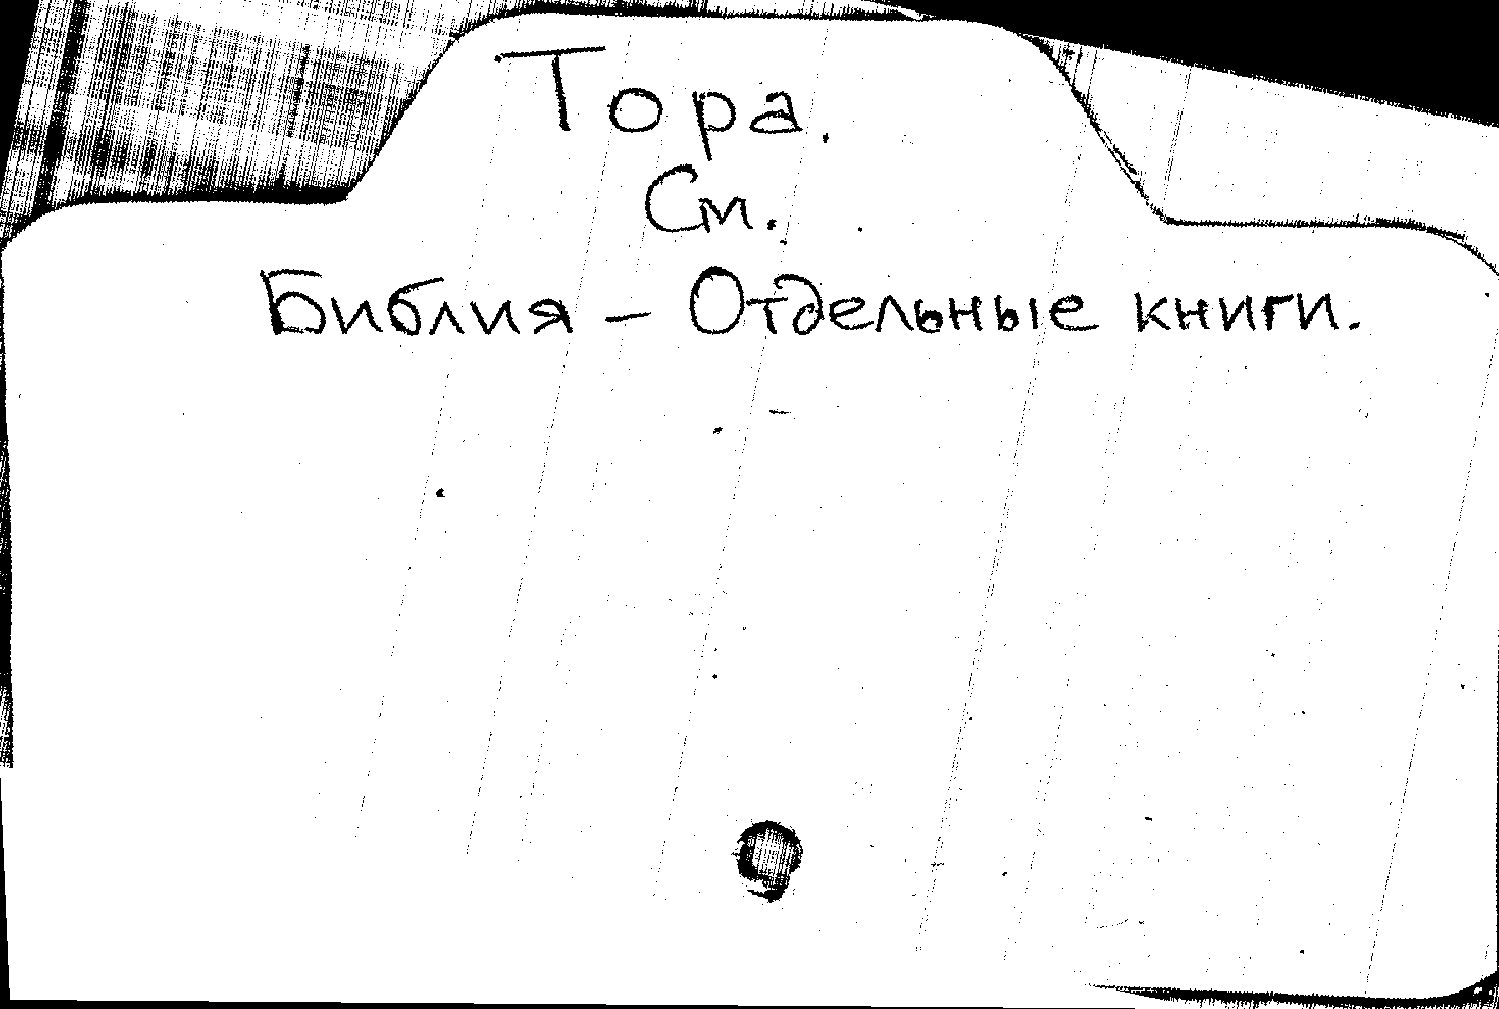 Тора.
См.
Библия – Отдельные книги.